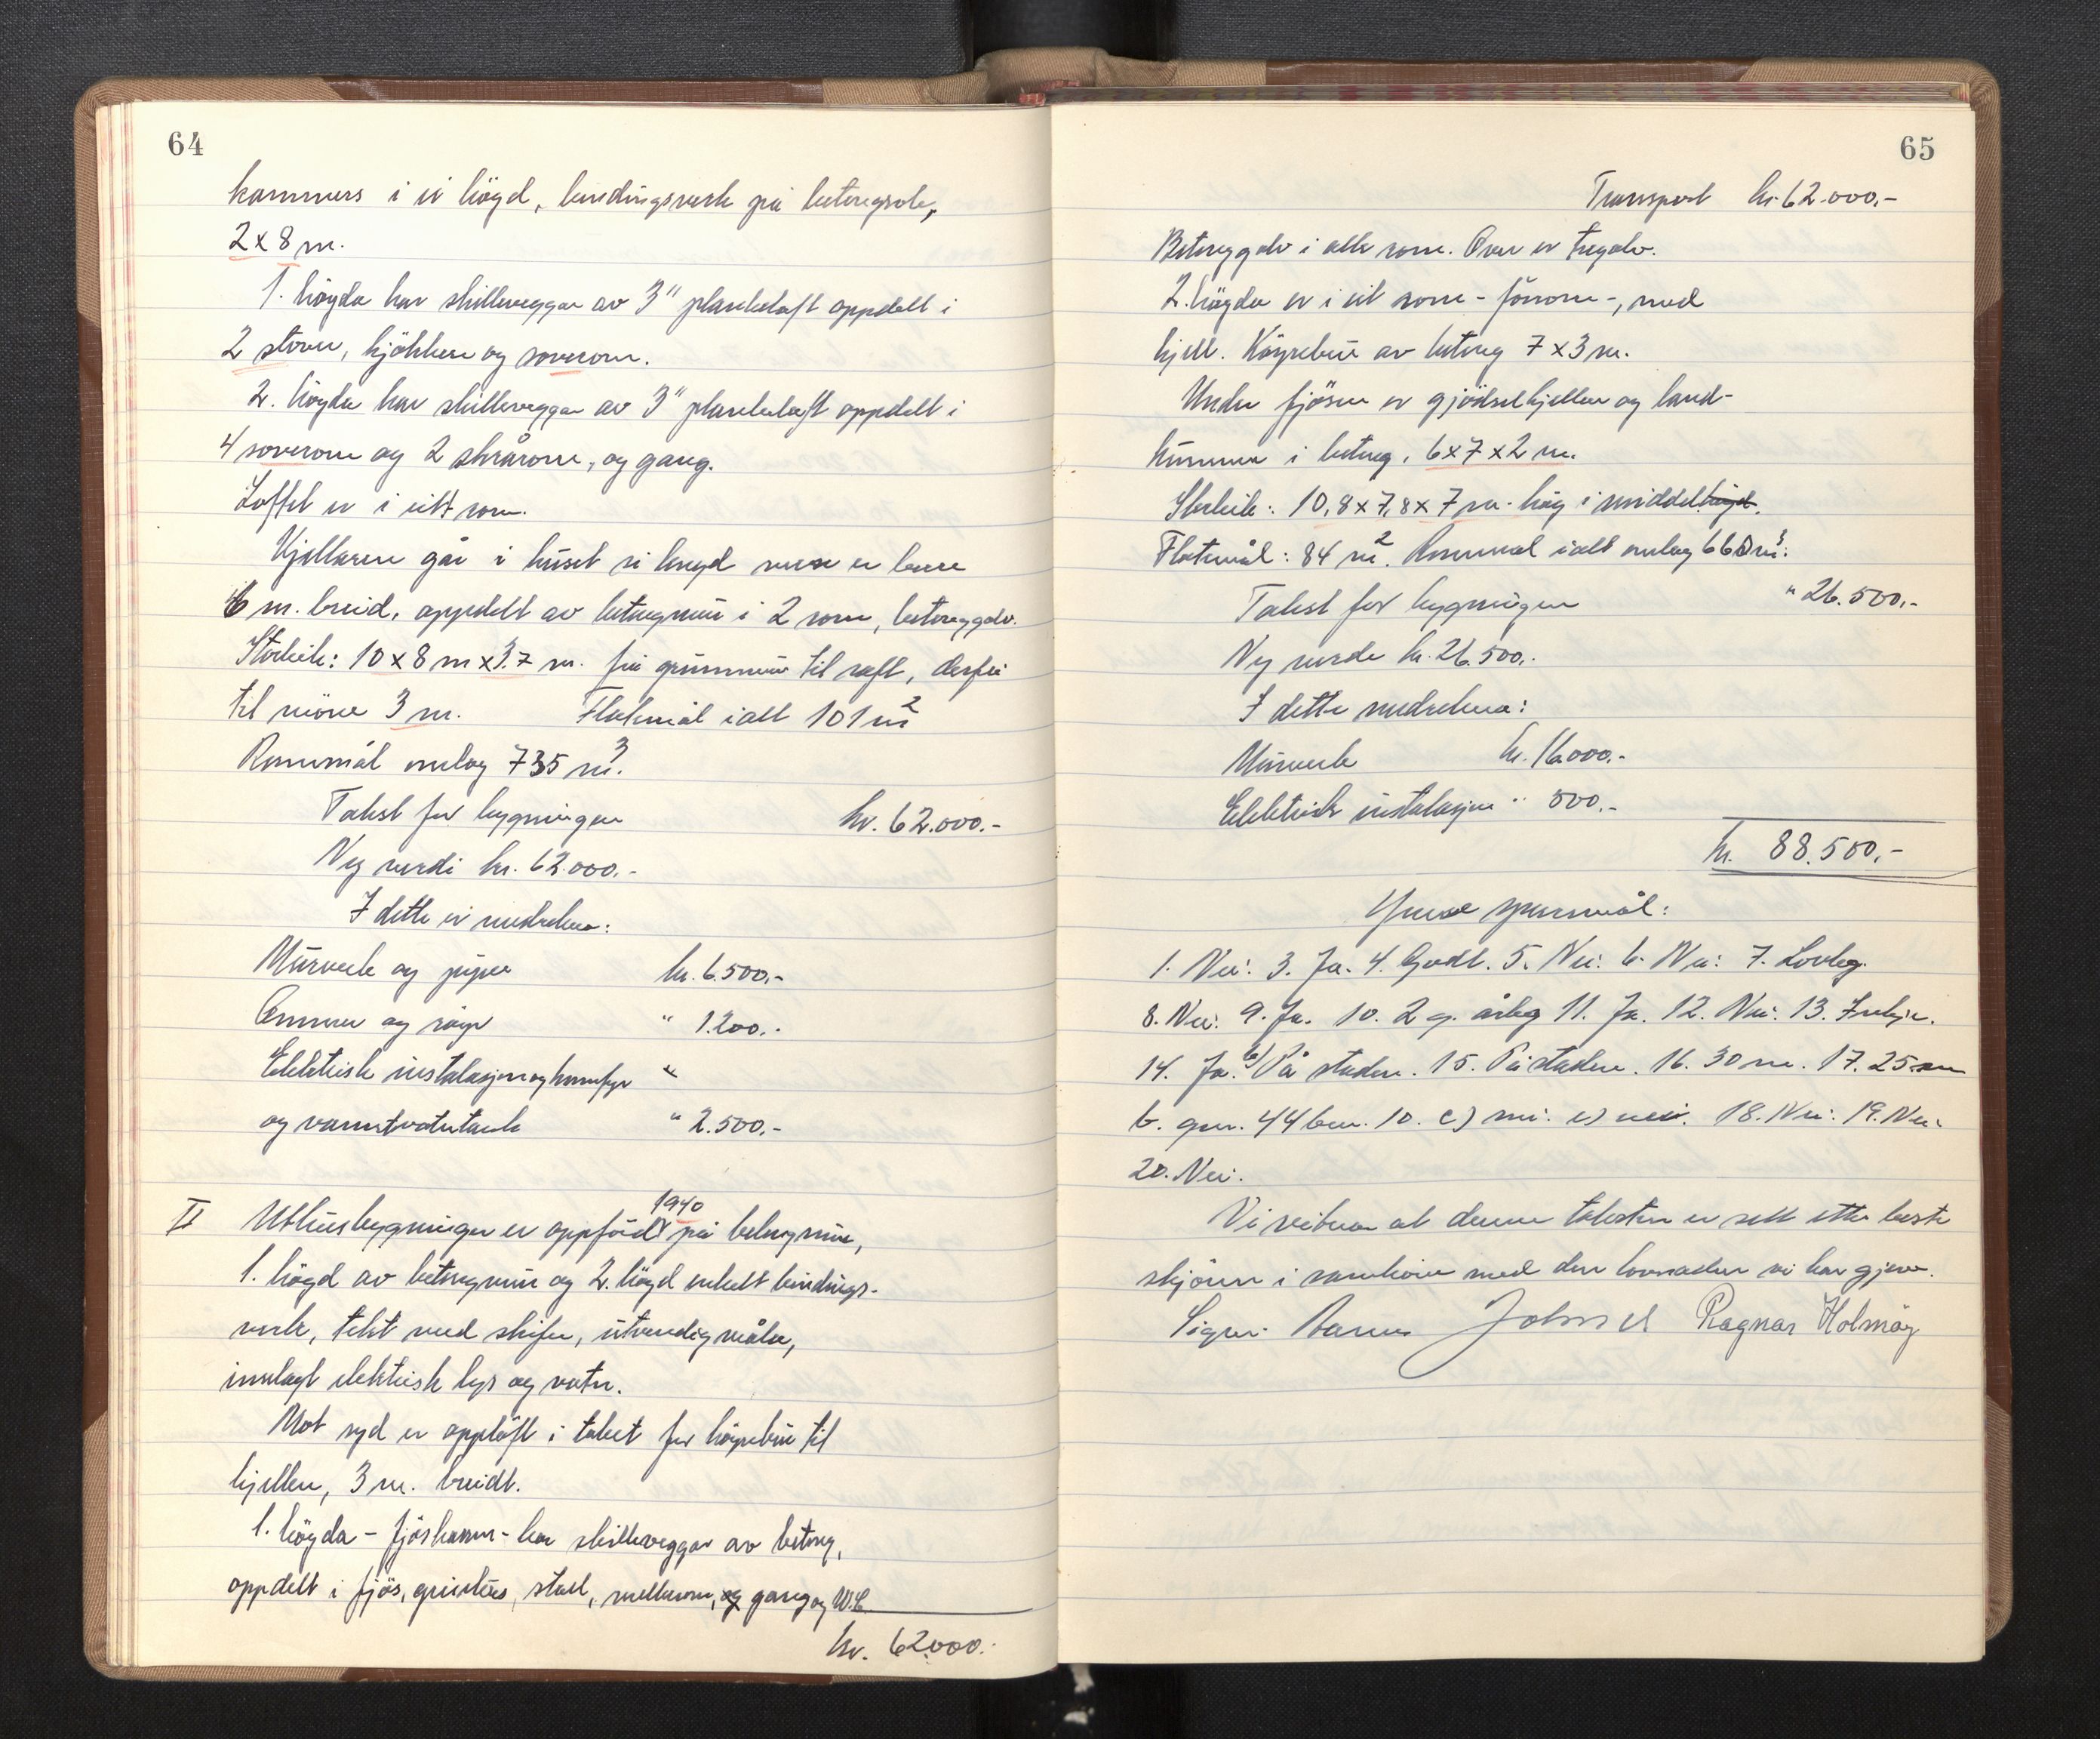 64
kammers i ei högd, bindingsverk på betongsole,
2 x 8 m.
1. högda har skilleveggar av 3" planketaft oppdelt i
2 stover, kjökken og soverom.
2. högda har skilleveggar av 3" planketaft oppdelt i
4 soverom og 2 skrårom, og gang.
Loftet er i eitt rom.
Kjellaren går i huset si lengd men er bare
6 m. breid, oppdelt av betongmur i 2 rom, betonggolv.
Storleik: 10 x 8 m x 3.7 m. frå grunnmur til raft, derfrå
til möne 3 m. Flatemål ialt 101 m²
Rommål omlag 735 m³.
Takst for bygningen kr. 62.000.-
Ny verdi kr. 62.000.-
I dette er medrekna:
Murverk og piper kr. 6.500.-
Omner og röyr " 1.200.-
Elektrisk instalasjon og komfyr "
og varmtvatntank " 2.500.-
II Uthusbygningen er oppförd 1940 på betongmur,
1. högd av betongmur og 2. högd enkelt bindings-
verk, tekt med skifer, utvendig måla,
innlagt elektrisk lys og vatn.
Mot syd er opplöft i taket for köyrebru til
hjellen, 3 m. breidt.
1. högda - fjöshamn - har skilleveggar av betong,
oppdelt i fjös, grisehus, stall, mellarom, og gang og W.C.
kr. 62000.-
65
Transport kr. 62.000.-
Betonggolv i alle rom. Over er tregolv.
2. högda er i eit rom - förrom -, med
hjell. Köyrebru av betong 7 x 3 m.
Under fjösen er gjödselkjeller og land-
kummer i betong, 6 x 7 x 2 m.
Storleik: 10,8 x 7,8 x 7 m. høg i middelhögd.
Flatemål: 84 m². Rommål ialt omlag 660 m³.
Takst for bygningen " 26.500.-
Ny verde kr. 26.500.-
I dette medrekna:
Murverk kr. 16.000.-
Elektrisk instalasjon " 500.-
kr. 88.500.-
Ymse spursmål:
1. Nei. 3. Ja. 4. Godt. 5. Nei. 6. Nei. 7. Lovleg.
8. Nei. 9. Ja. 10. 2 g. årleg 11. Ja. 12. Nei. 13. Innkje.
14. Ja. b) På staden. 15. På staden. 16. 30 m. 17. 25 m
b. gnr. 44 bnr. 10. c) nei. e) nei. 18. Nei. 19. Nei.
20. Nei.
Vi vitnar at denne taksten er sett etter beste
skjönn i samhöve med den lovnaden vi har gjeve.
Ragnar Holmöy